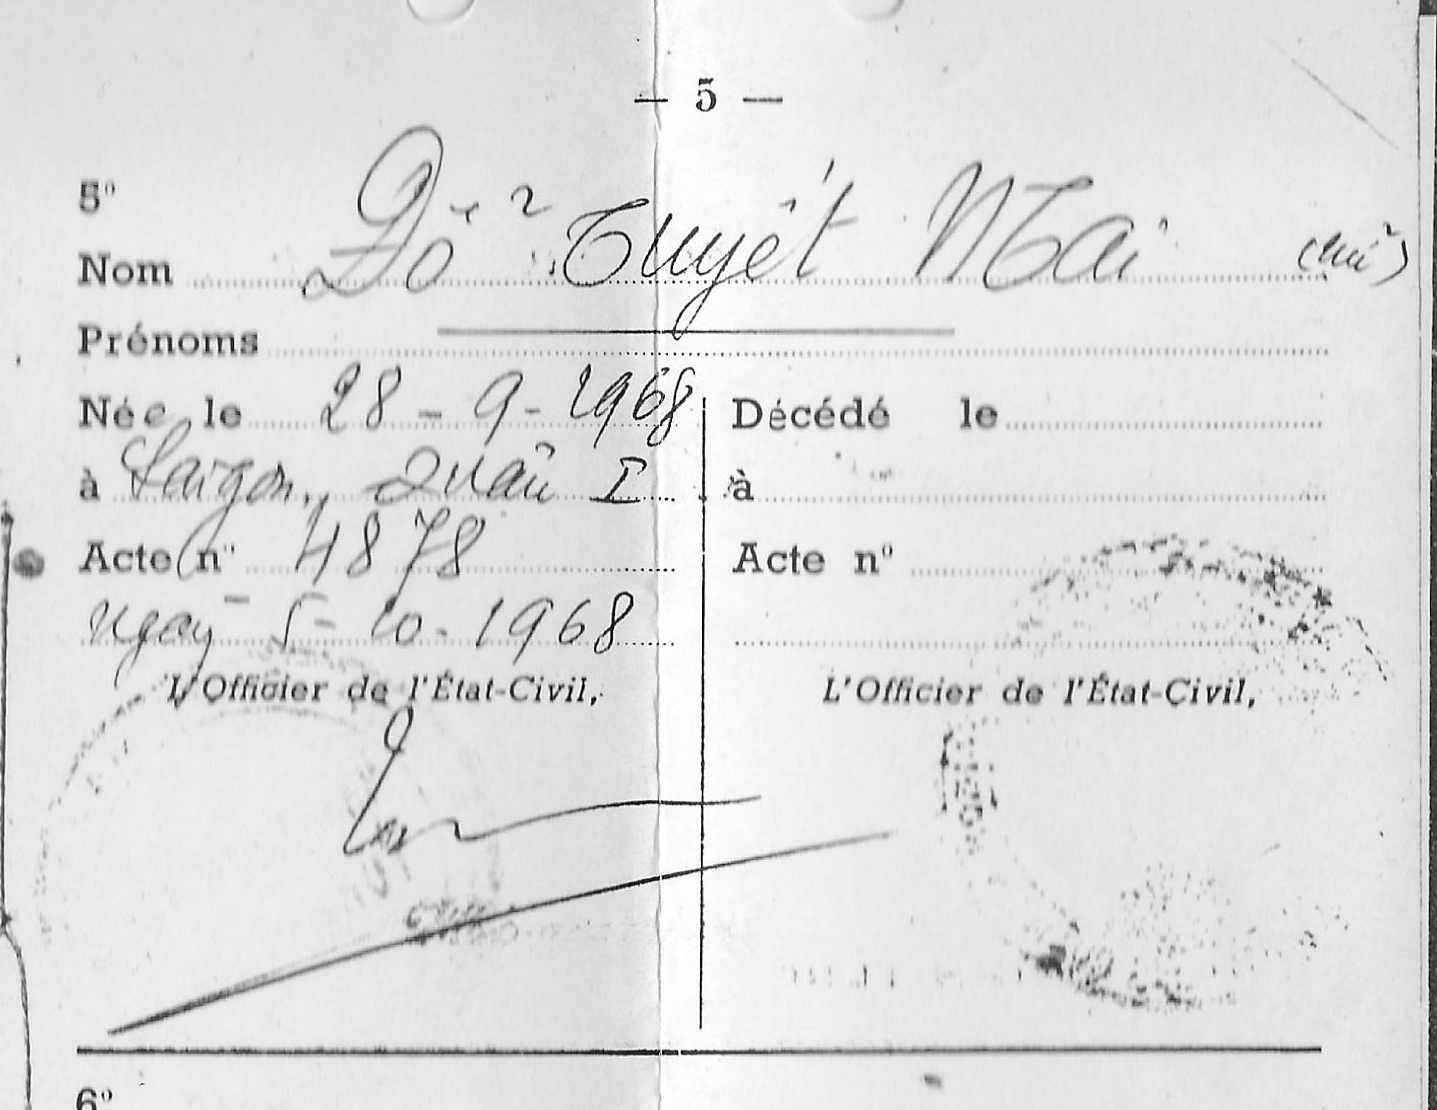 — 5 —
5º
Nom Đỗ Tuyết Mai (nữ)
Prénoms
Née le 28 - 9 - 1968
à Saigon, Quận I
Acte nº 4878
ngày 5 - 10 - 1968
L'Officier de l'État-Civil,
Décédé le
à
Acte nº
L'Officier de l'État-Civil,
6º